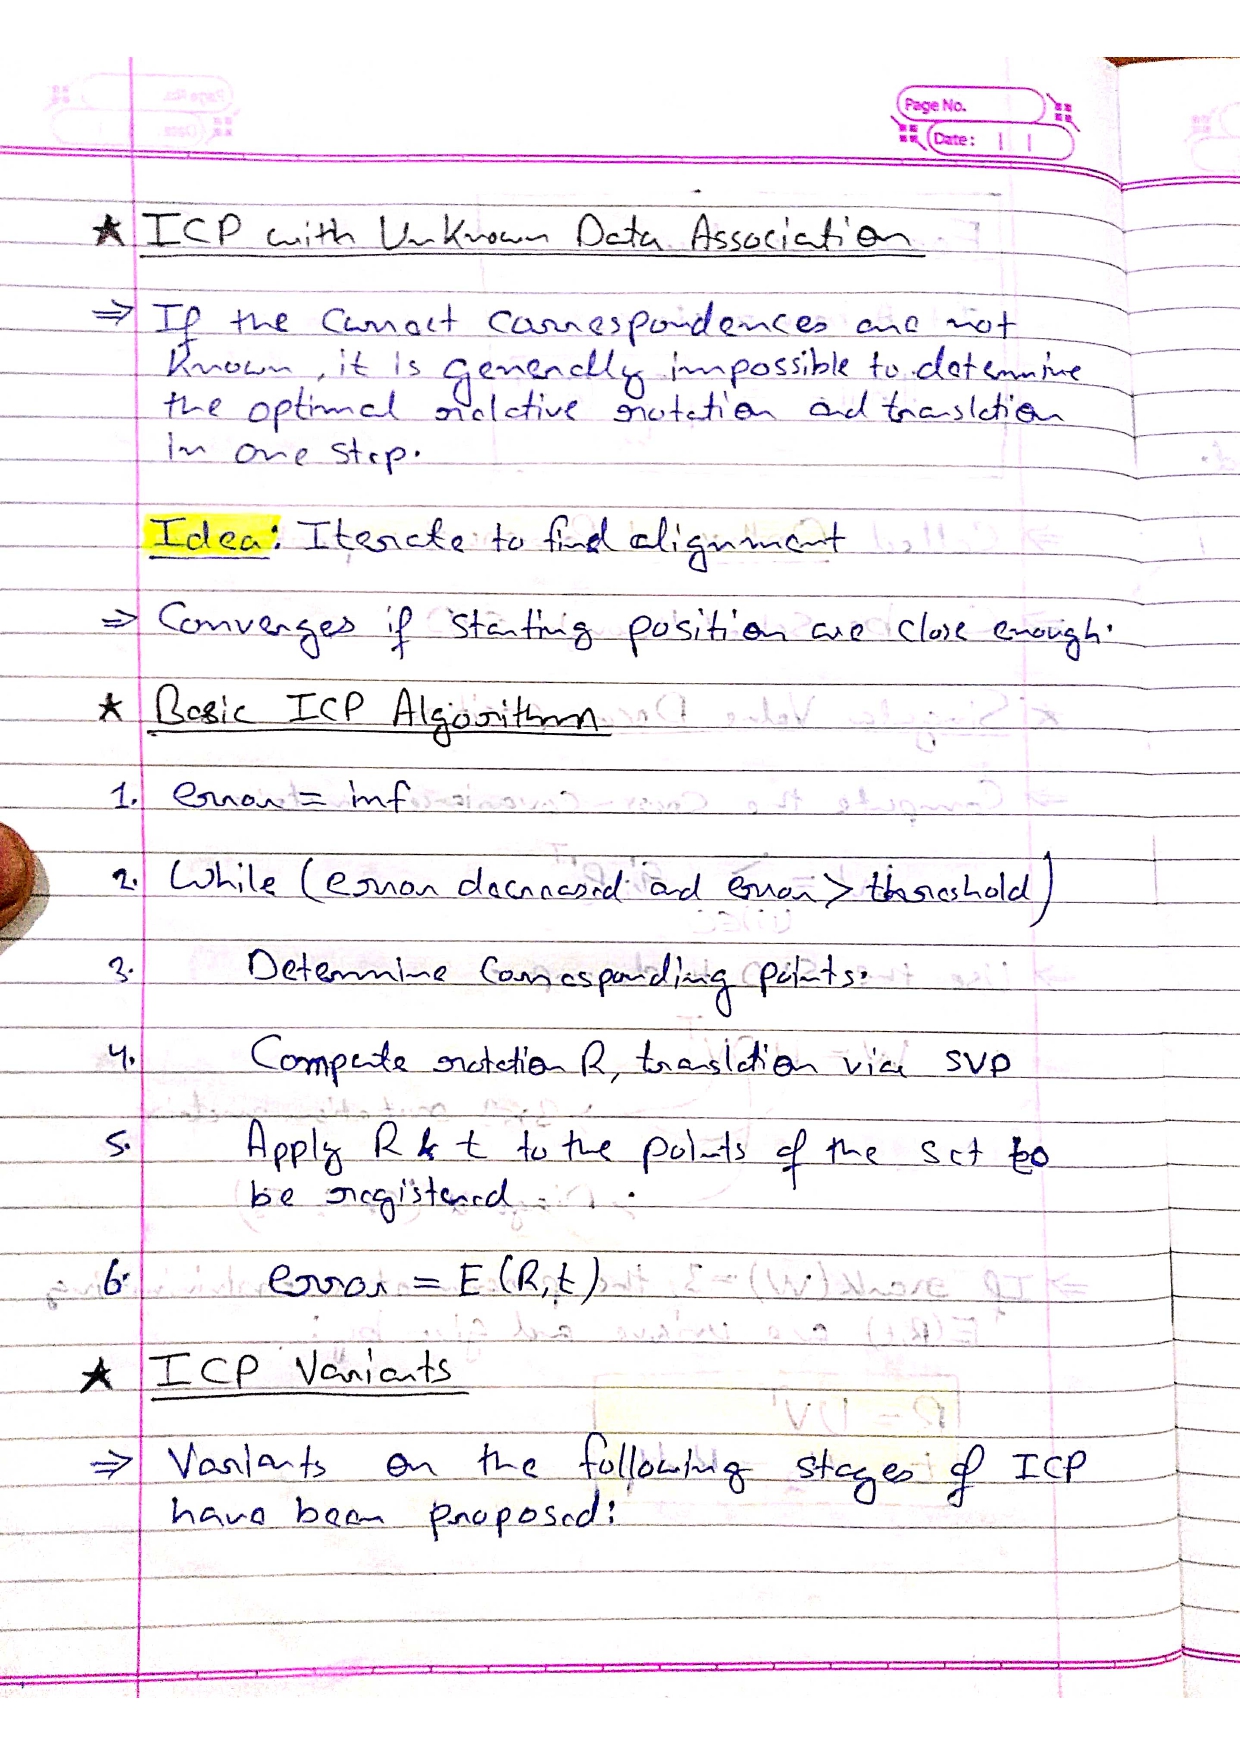 Page No.
Date:
★ ICP with UnKnown Data Association
⇒ If the Correct Correspondences are not
Known, it is generally impossible to determine
the optimal relative rotation and translation
in one step.
Idea: Iterate to find alignment
⇒ Converges if starting position are close enough.
★ Basic ICP Algorithm
1. error = inf
2. While (error decreased and error > threshold)
3. Determine Corresponding points.
4. Compute rotation R, translation via SVD
5. Apply R & t to the points of the set to
be registered
6. error = E(R,t)
★ ICP Variants
⇒ Variants on the following stages of ICP
have been proposed: